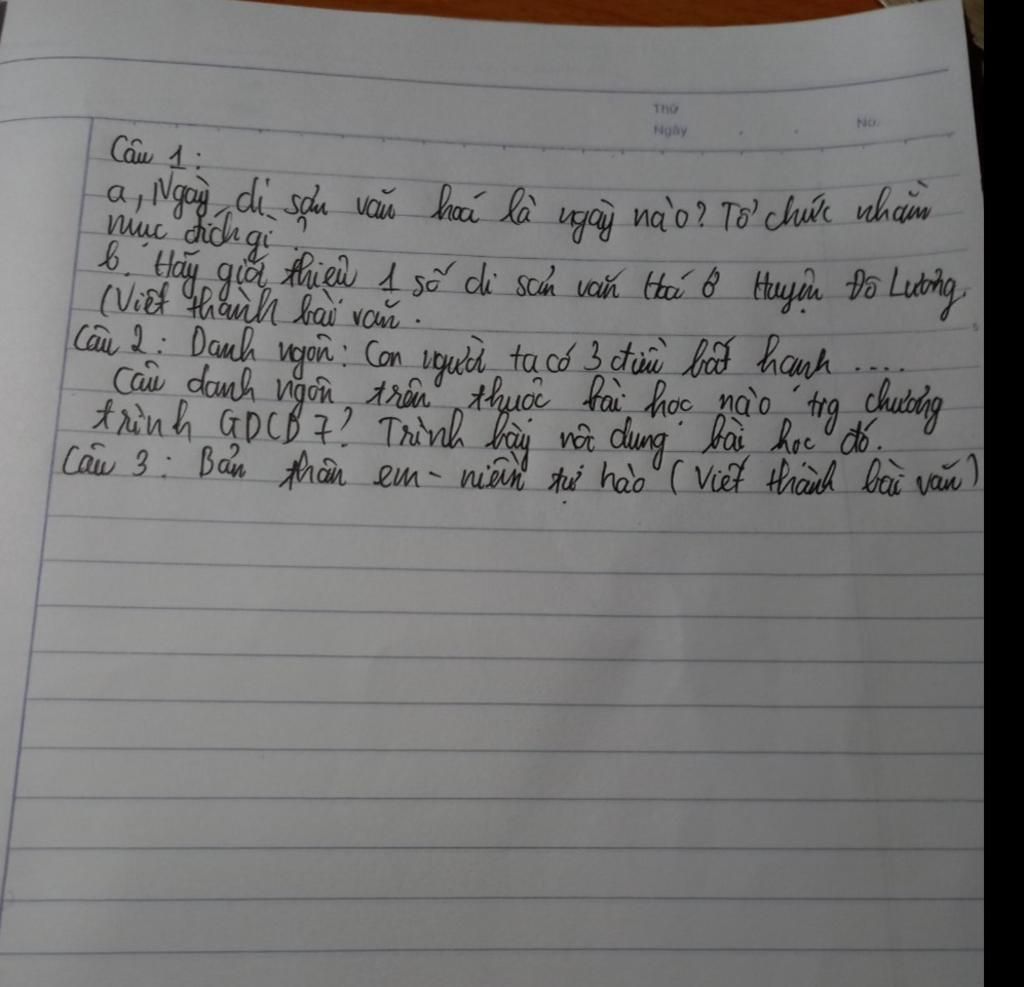 Thứ
Ngày
No.
Câu 1:
a, Ngày di sản văn hoá là ngày nào? Tổ chức nhằm
mục đích gì?
b. Hãy giới thiệu 1 số di sản văn Hoá ở Huyện Đô Lương.
(Viết thành bài văn.
Câu 2: Danh ngôn: Con người ta có 3 điều bất hạnh ....
Câu danh ngôn trên thuộc bài học nào trg chương
trình GDCD 7? Trình bày nôc dung bài học đó.
Câu 3: Bản thân em - niền tự hào (Viết thành bài văn)